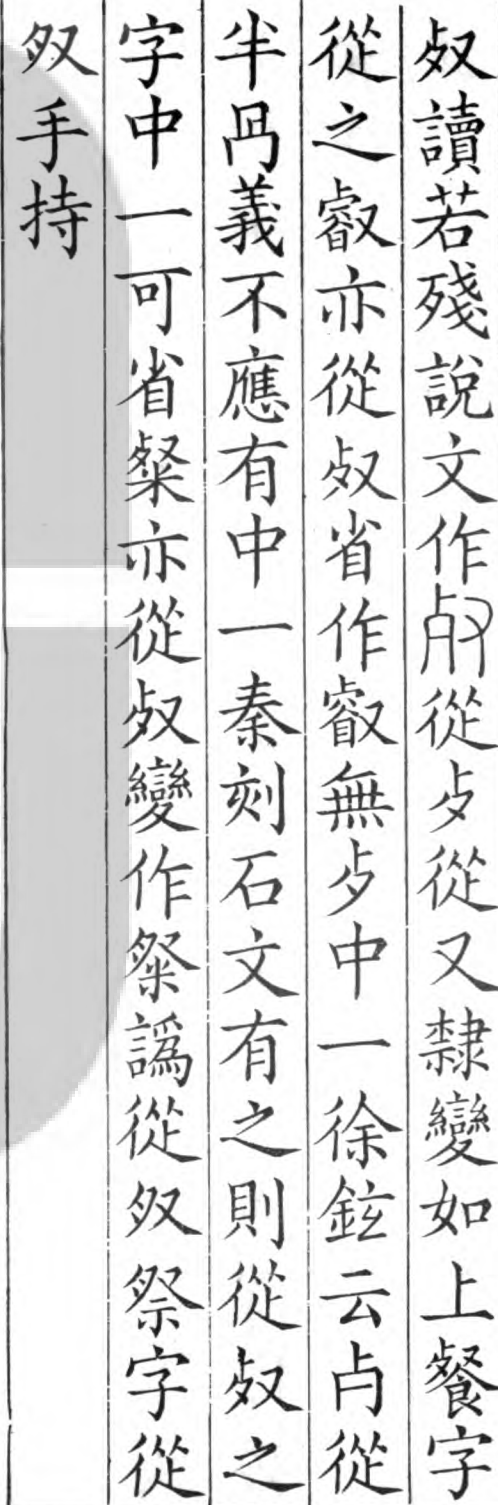 𣦼讀若殘說文作從歺從又隸變如上餐字
從之叡亦從𣦼省作叡無歺中一徐鉉云歺從
半冎義不應有中一秦刻石文有之則從𣦼之
字中一可省粲亦從𣦼變作粲譌從祭字從
手持